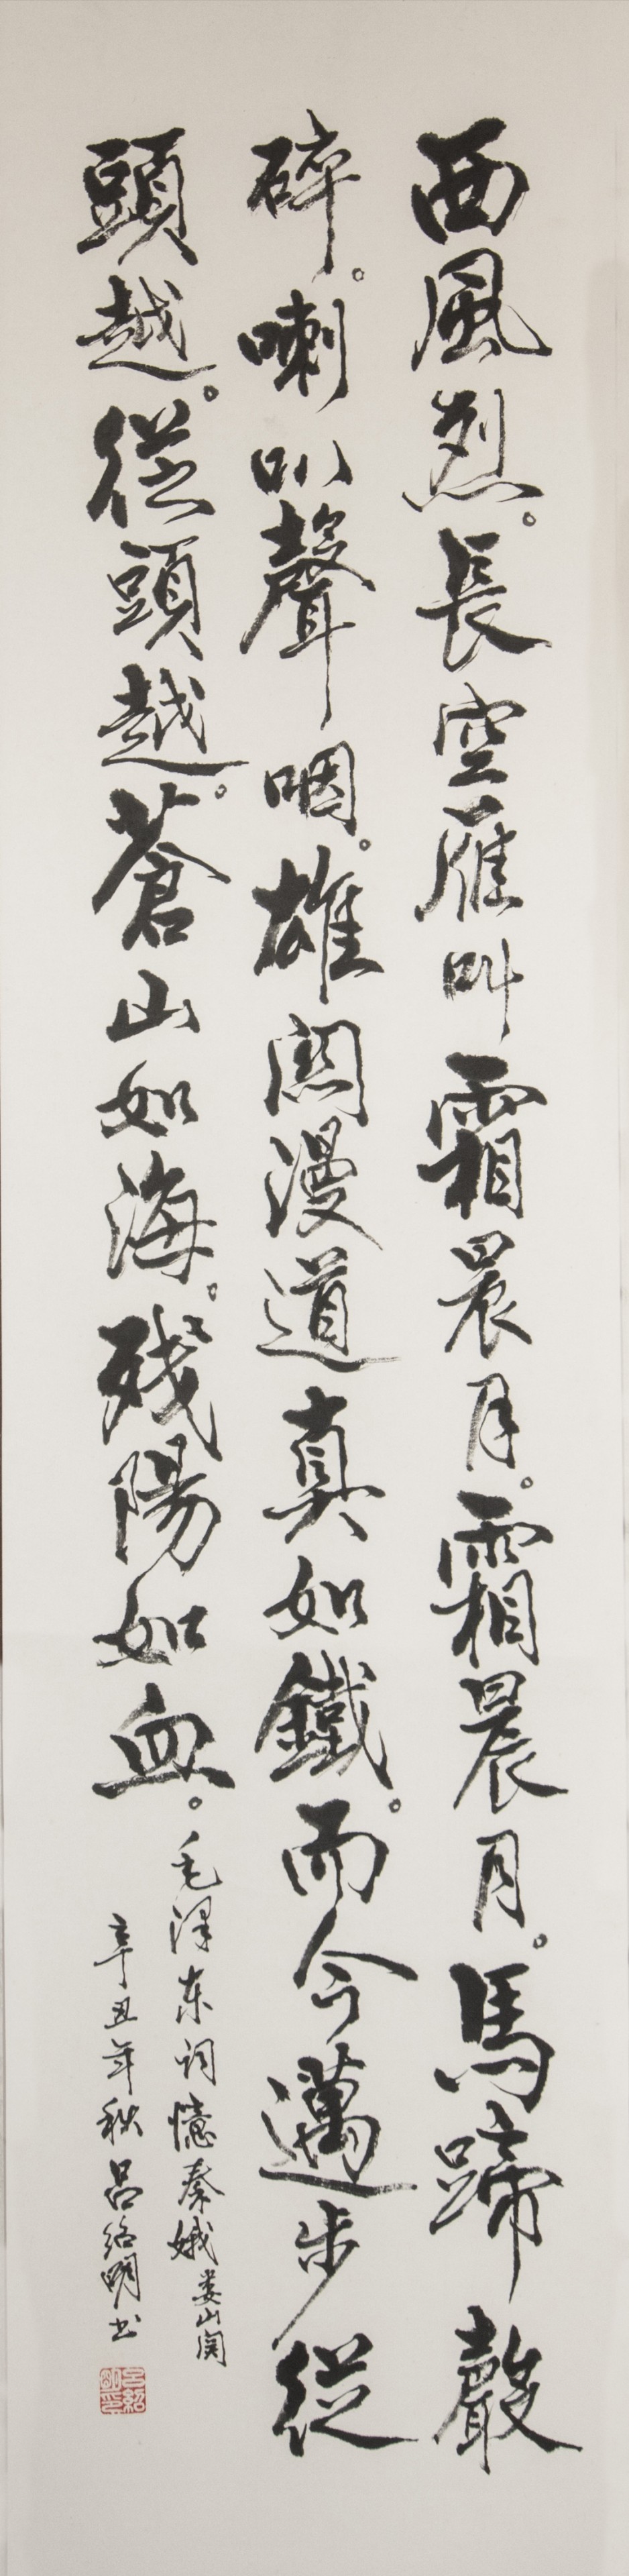 西風烈。長空雁叫霜晨月。霜晨月。馬蹄聲
碎。喇叭聲咽。雄関漫道真如鐵。而今邁步從
頭越。從頭越。蒼山如海。残陽如血。
毛澤东词憶秦娥娄山関
辛丑年秋吕紹明书